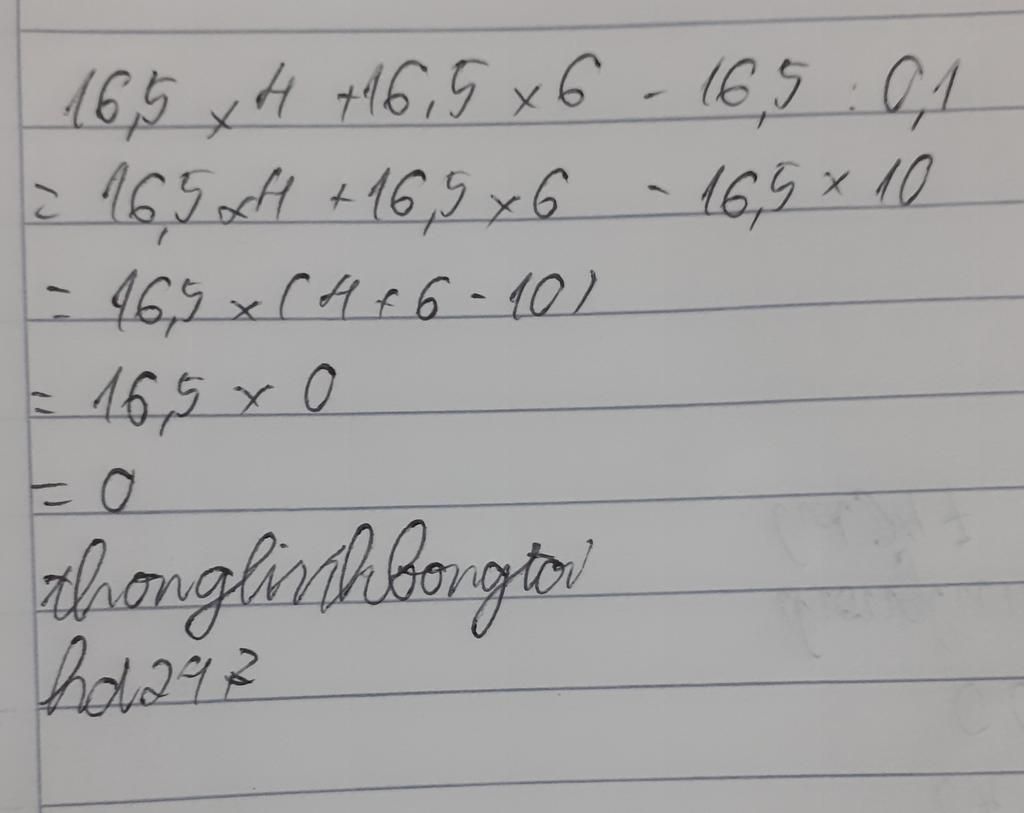 16,5 × 4 + 16,5 × 6 - 16,5 : 0,1
= 16,5 × 4 + 16,5 × 6 - 16,5 × 10
= 16,5 × (4 + 6 - 10)
= 16,5 × 0
= 0
thonglinhbongtoi
hd297